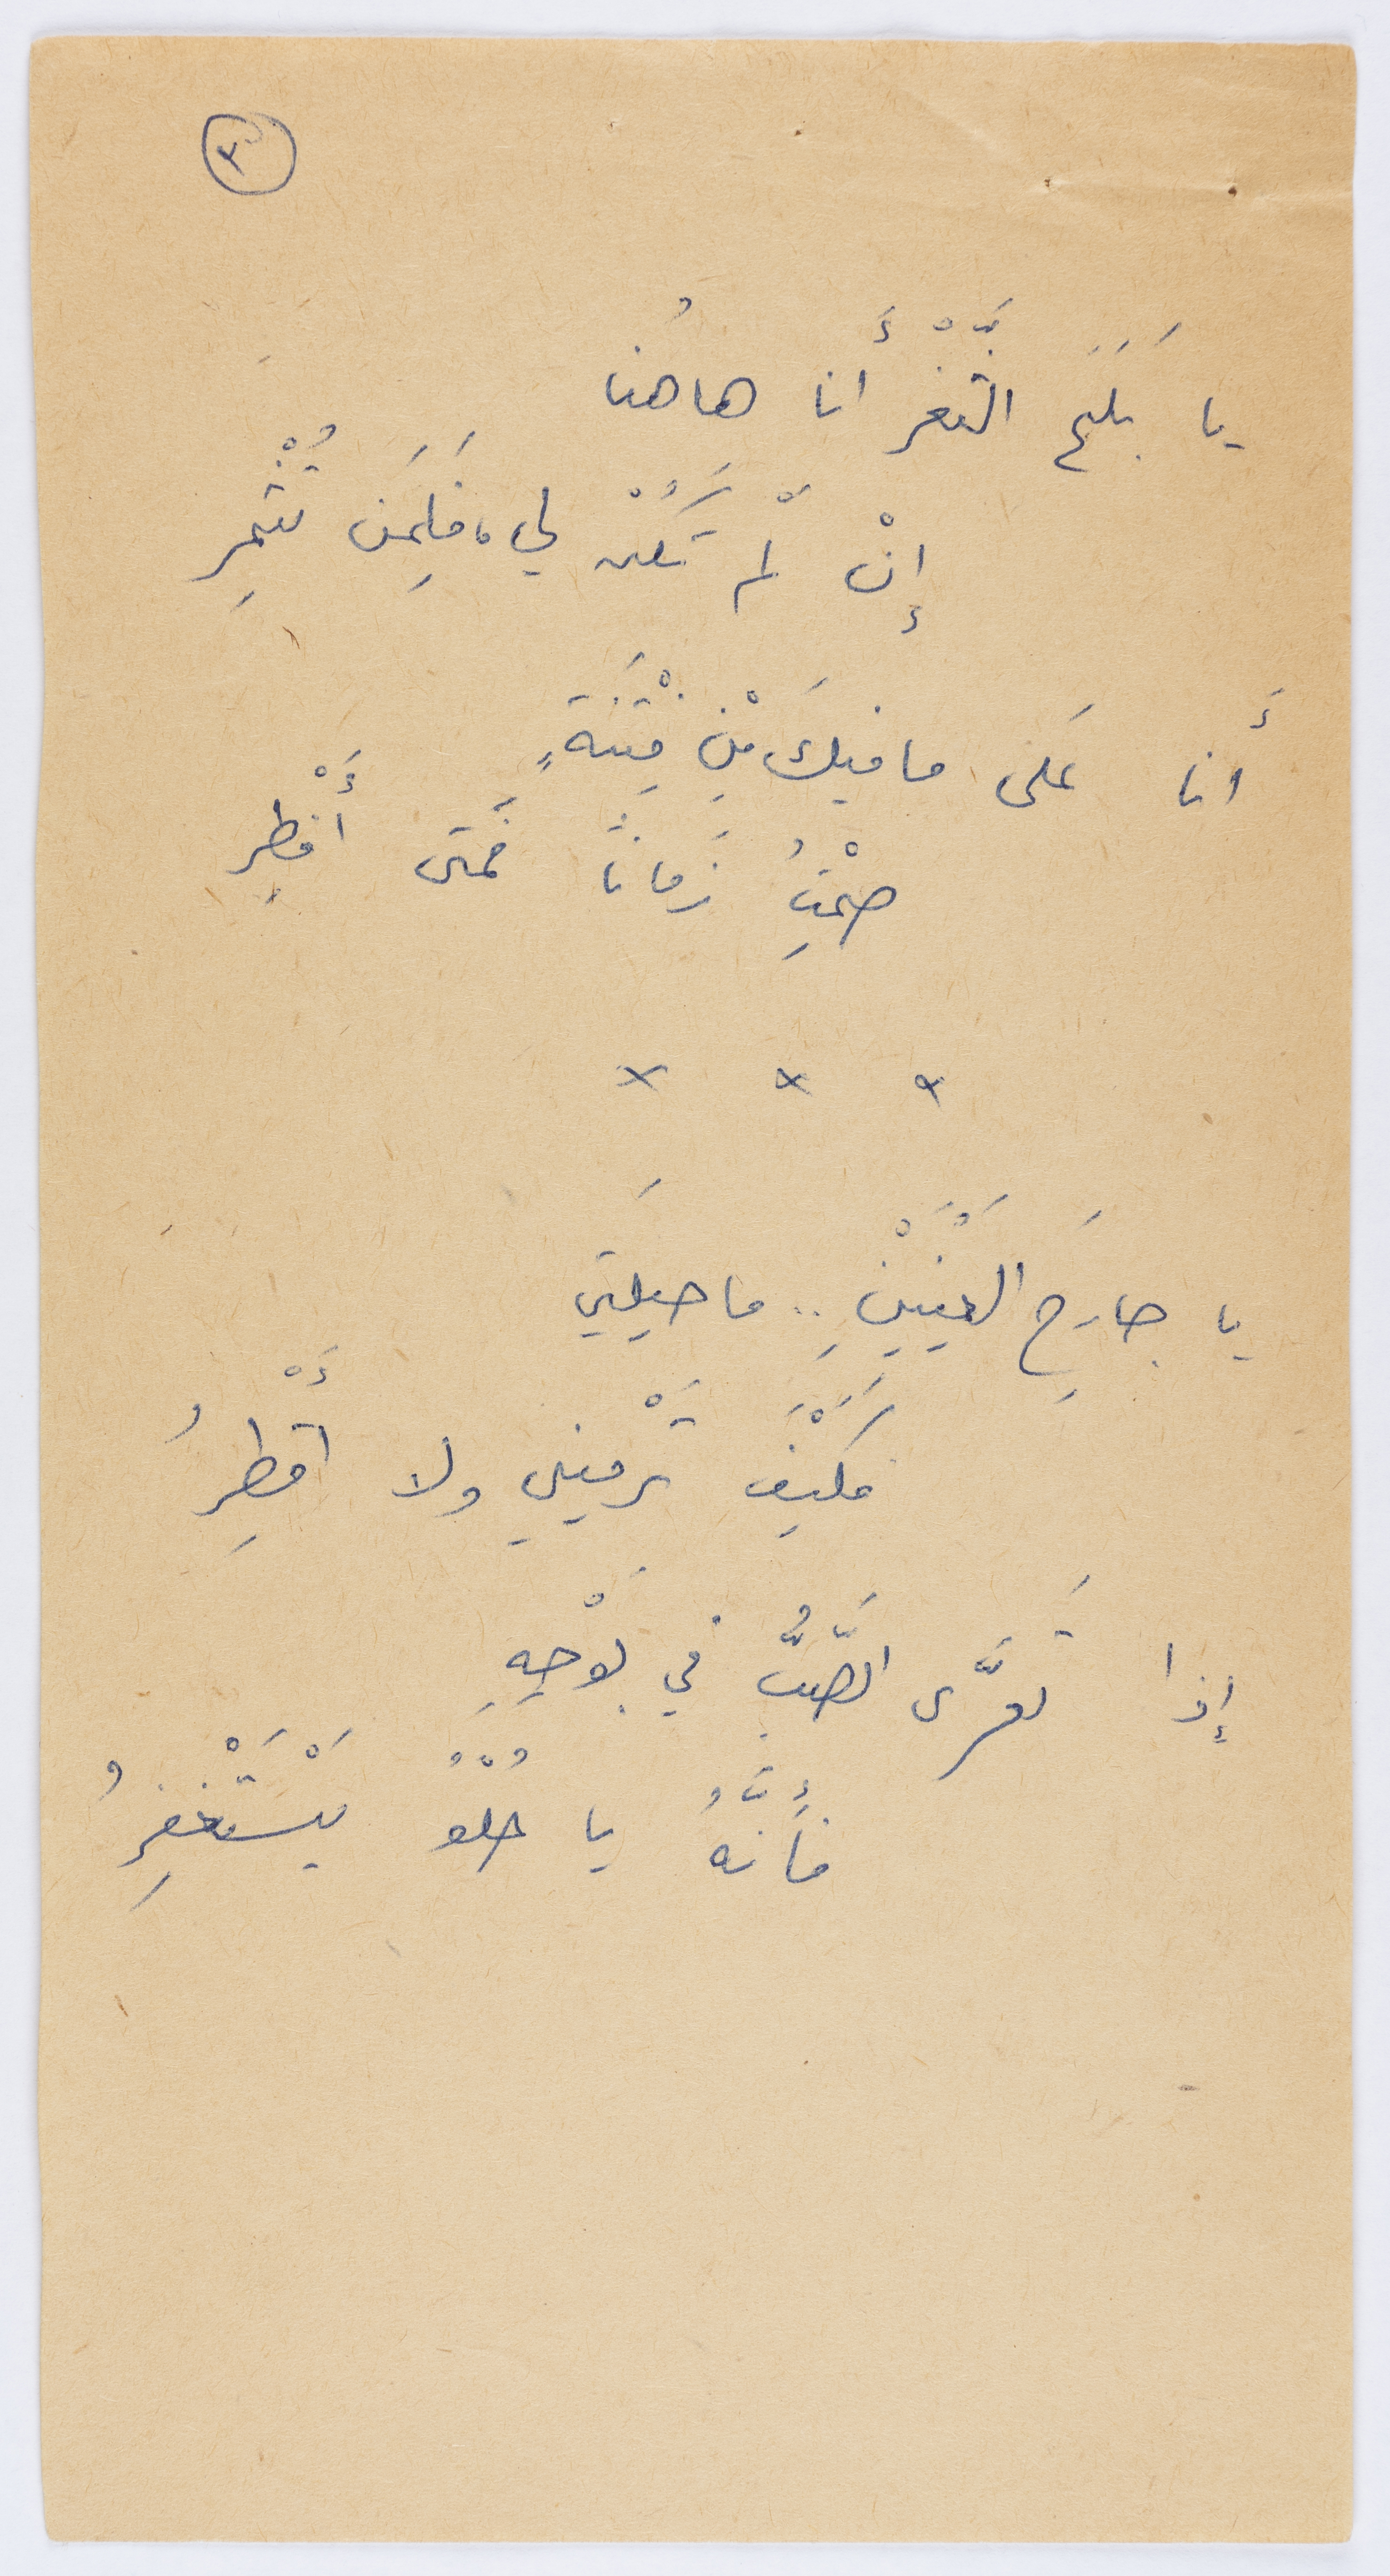 ٣
يا بَلَحَ الثَّغْرِ أَنا هاهُنا
إِنْ لَّمْ تَكُنْ لي، فَلِمَن تُثْمِر
أَنا عَلى ما فيكَ مِنْ فِتْنَةٍ
صُمْتُ زَماناً فَمَتى أَفْطِر
× × ×
يا جارِحَ العَيْنَيْنِ.. ما حيلَتي
فكَيْفَ تَرْميني ولا أَقْطِرُ
إِذا تَعَرَّى الصَّبُّ في بَوْحِهِ
فَإِنَّهُ يا حُلْوُ يَسْتَغْفِرُ